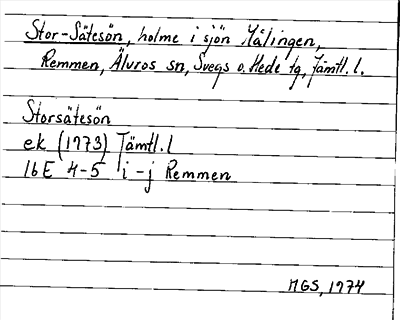 Stor-Sätesön, holme i sjön Målingen,
Remmen, Älvros sn, Svegs o. Hede tg, Jämtl. l.
Storsätesön
ek (1973) Jämtl. l
16 E 4-5 i-j Remmen
MGS, 1974